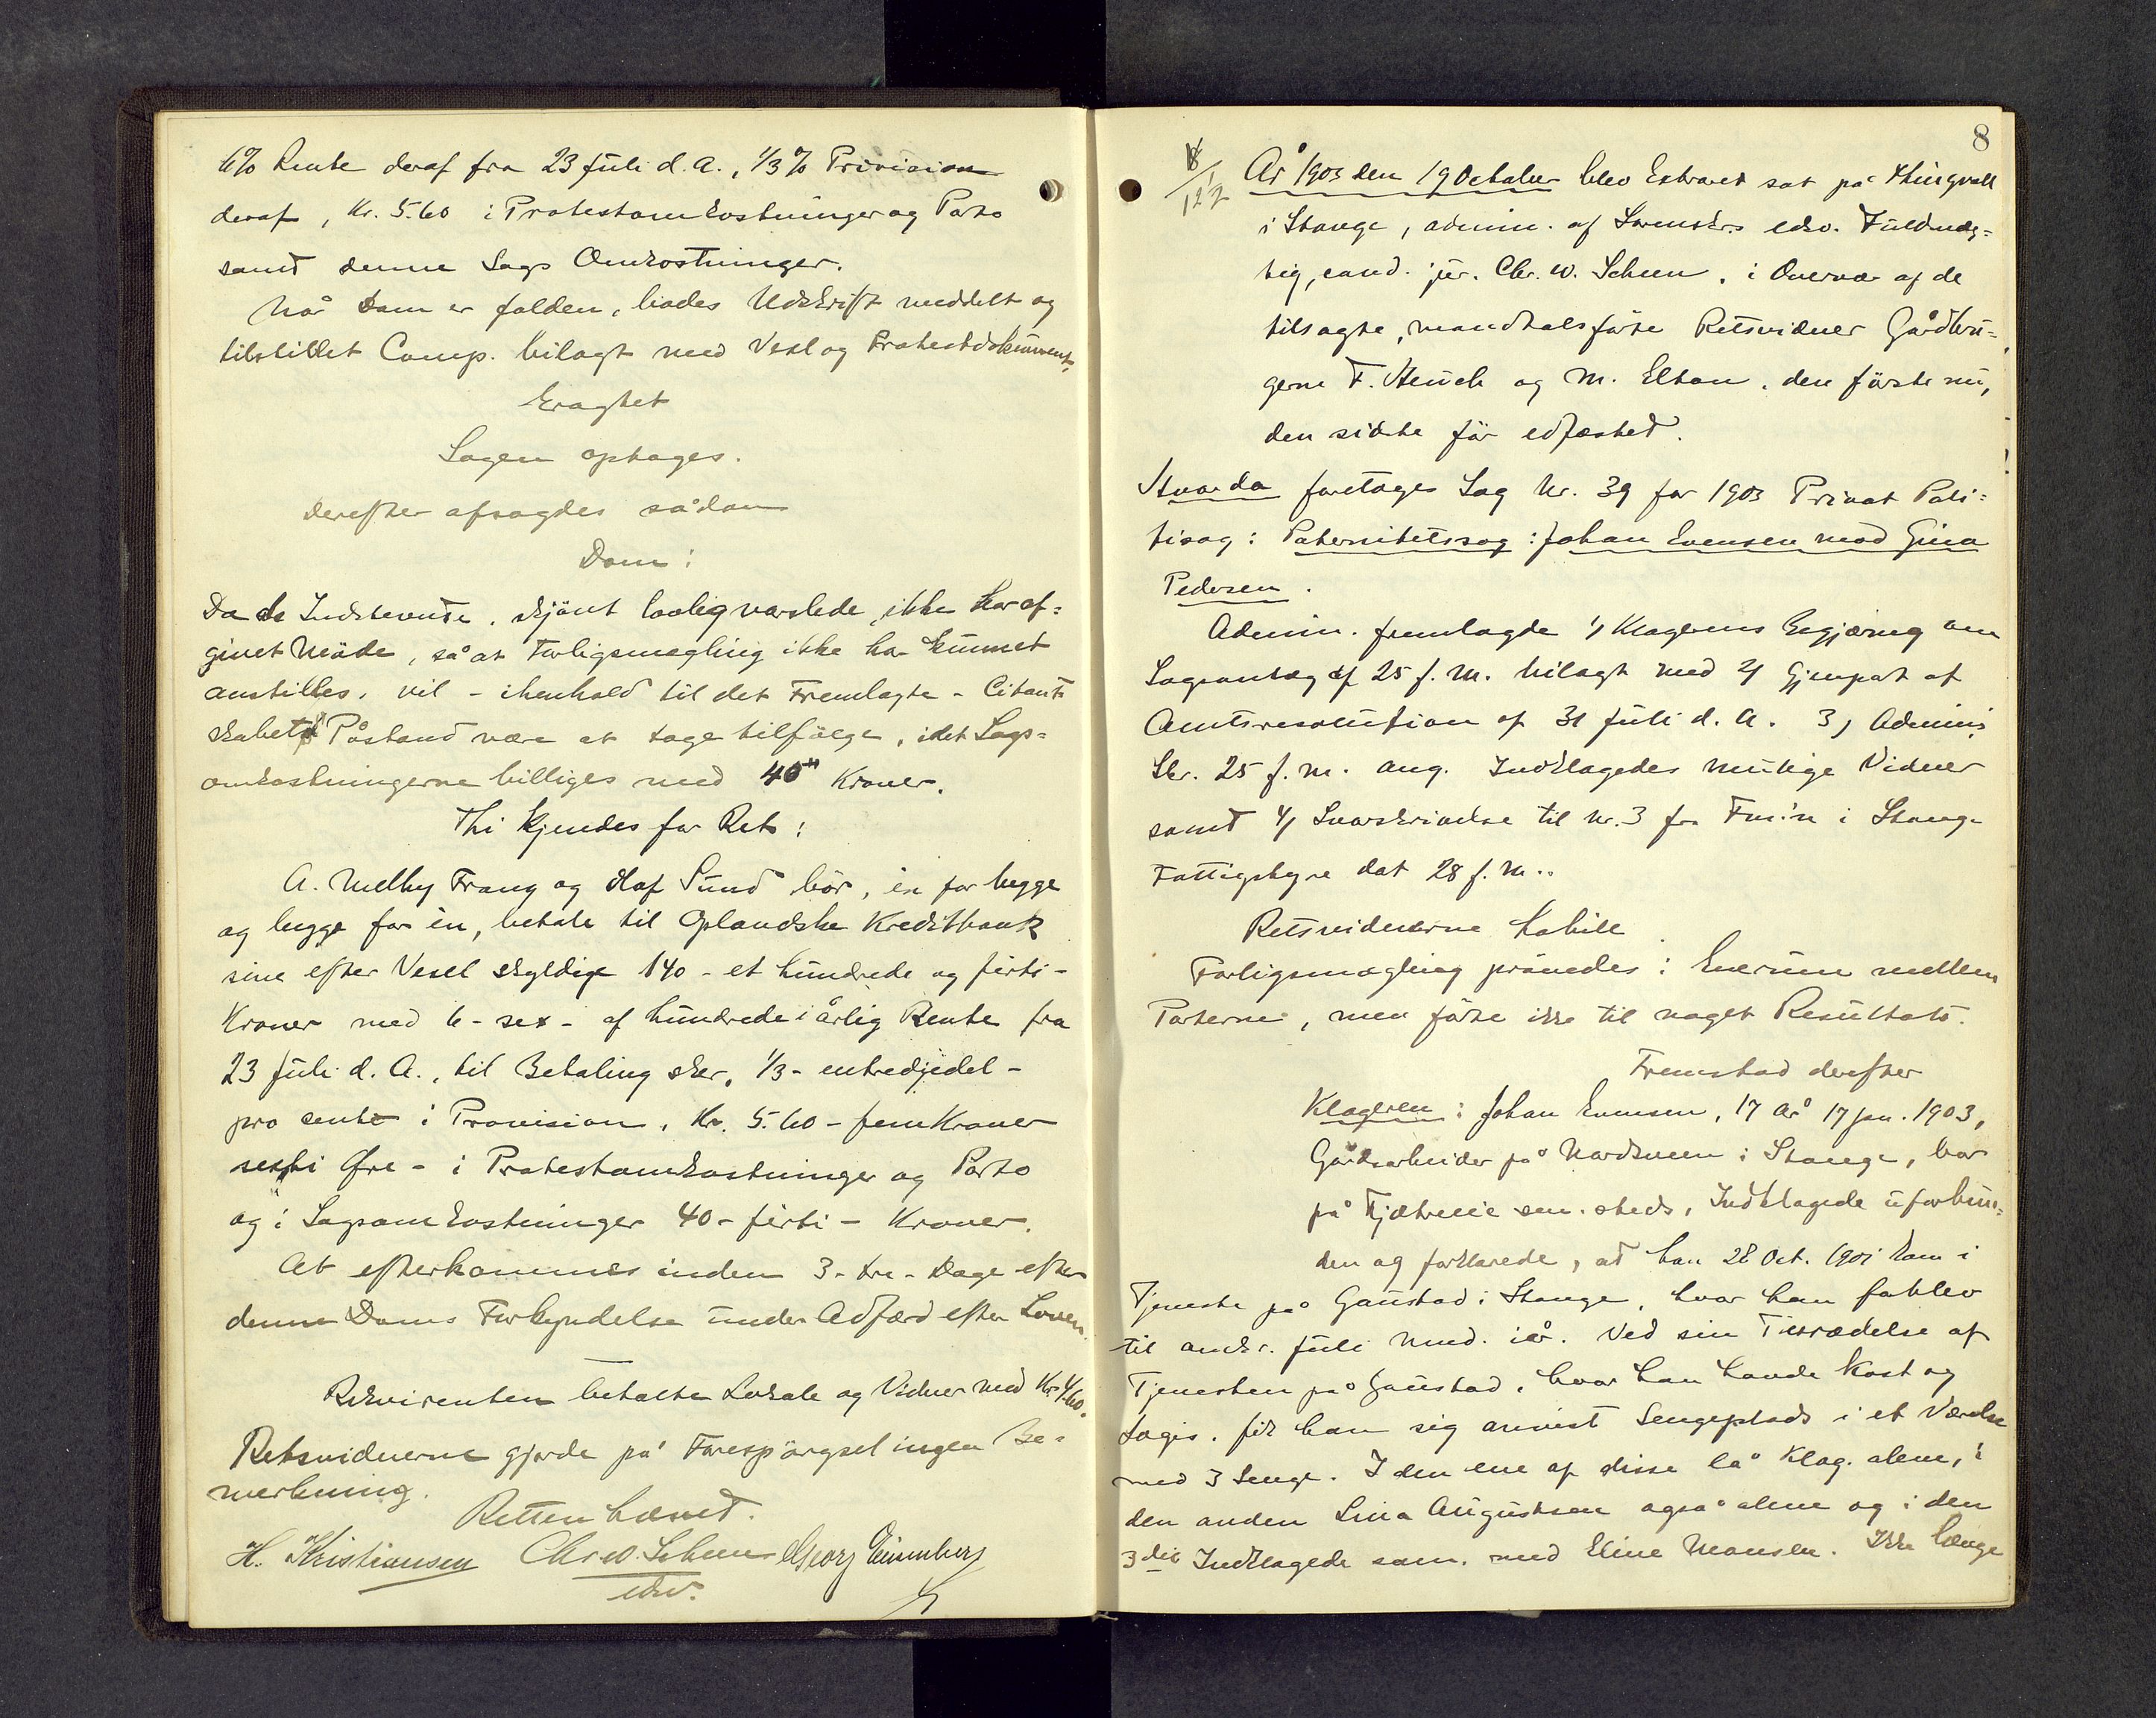 6% Rente deraf fra 23 Juli d. A., 1/3% Provision
deraf, Kr. 5.60 i Protestomkostninger og Porto
samt denne Sags Omkostninger.
Når Dom er falden, bedes Udskrift meddelt og
tilstillet Comp. bilagt med Vexl og Protestdokument.
Eragtet
Sagen optages.
Derefter afsagdes sådan
Dom:
Da de Indstevnte, skjönt lovlig varslede, ikke har af=
givet Möde, så at Forligsmegling ikke har kunnet
anstilles, vil - ihenhold til det Fremlagte - Citant
skabets Påstand være at tage tilfölge, idet Sags=
omkostningerne billiges med 40 Kroner.
Thi kjendes for Ret:
A. Melby Frang og Olaf Sund bör, én for begge
og begge for én, betale til Oplandske Kreditbank
sine efter Vexel skyldige 140 - et hundrede og firti -
Kroner med 6 - sex - af hundrede i årlig Rente fra
23 Juli d. A., til Betaling sker, 1/3 - entredjedel -
pro cent i Provision, Kr. 5.60 - fem Kroner
sexti Øre - i Protestomkostninger og Porto
og i Sagsomkostninger 40 - firti - Kroner.
At efterkommes inden 3 - tre - Dage efter
denne Doms Forkyndelse under Adfærd efter Loven.
Rekvirenten betalte Lokale og Vidner med Kr. 4.60.
Retsvidnerne gjorde på Forespörgsel ingen Be=
merkning.
Retten hævet.
H. Kristiansen Chr. W. Scheen Georg
edsv.
8
År 1903 den 19 October blev Extraret sat på Thingvold
i Stange, admin. af Sorenskrs edsv. Fuldmæg=
tig, cand. jur. Chr. W. Scheen, i Overvær af de
tilsagte, mandtalsförte Retsvidner Gårdbru=
gerne F. Heuch og M. Elton, den förste nu,
den sidste för edfæstet.
Hvorda foretoges Sag Nr. 39 for 1903 Privat Poli=
tisag: Paternitetssag: Johan Evensen mod Gina
Pedersen.
Admin. fremlagde 1) Klagerens Begjæring om
Sagsanlæg af 25 f. M. bilagt med 2) Gjenpart af
Amtsresolution af 31 Juli d. A. 3) Admins
Skr. 25 f. M. ang. Indklagedes mulige Vidner
samt 4) Svarskrivelse til Nr. 3 fra i Stange
Fattigstyre dat 28 f. M..
Retsvidnerne
Forligsmægling prövedes i Enerum mellem
Parterne, men förte ikke til noget Resultat.
Fremstod derefter
Klageren: Johan Evensen, 17 År 17 Jan. 1903,
Gårdsarbeider på i Stange, bor
på sammesteds, Indklagede uforbun=
den og forklarede, at han 28 Oct. 1901 kom i
Tjeneste på Gaustad i Stange, hvor han forblev
til Juli Mnd. iår. Ved sin Tiltrædelse af
Tjenesten på Gaustad, hvor han havde Kost og
Logis, fik han sig anvist Sengeplads i et Værelse
med 3 Senge. I den ene af disse lå Klag. alene, i
den anden Lina Augustsen også alene og i den
3die Indklagede sam. med Eline Monsen. Ikke længe